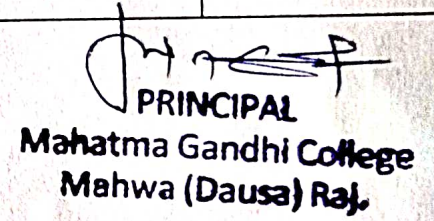 PRINCIPAL
Mahatma Gandhi College
Mahwa (Dausa) Raj.